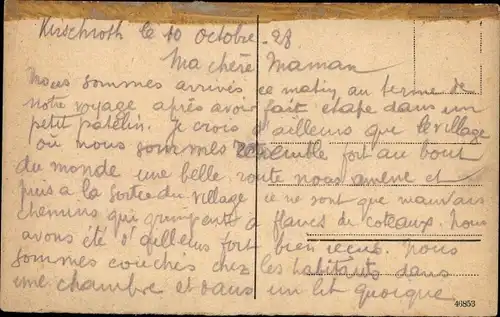 Kirschroth le 10 octobre 28
Ma chère Maman
Nous sommes arrivés ce matin au terme de
notre voyage après avoir fait étape dans un
petit patelin. Je crois d'ailleurs que le village
où nous sommes ressemble fort au bout
du monde une belle route nous amène et
puis a la sortie du village ce ne sont que mauvais
chemins qui grimpent a flancs de coteaux. Nous
avons été d'ailleurs fort bien recus. Nous
sommes couchés chez les habitants dans
une chambre et dans un lit quoique
40853